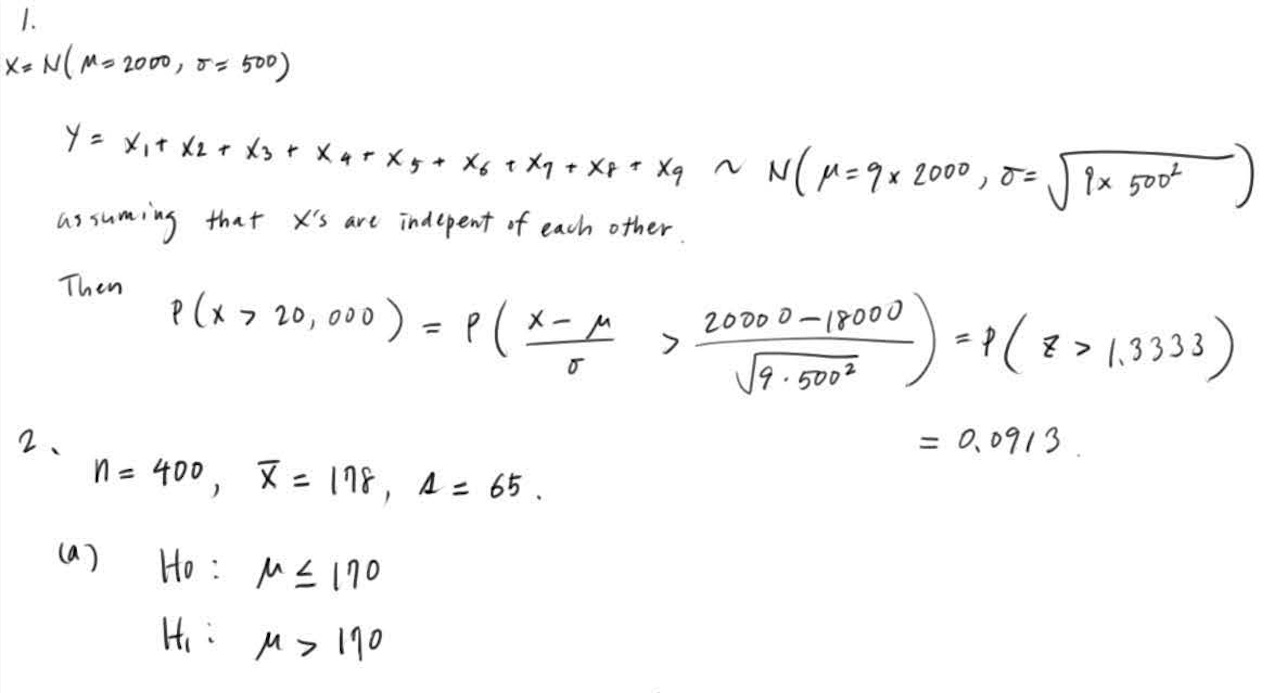 1.
X = N( μ = 2000, σ = 500)
Y = X₁ + X₂ + X₃ + X₄ + X₅ + X₆ + X₇ + X₈ + X₉ ~ N( μ = 9 x 2000, σ = √(9 x 500²) )
assuming that X's are indepent of each other.
Then
P( X > 20,000 ) = P( (X - μ)/σ > (20000 - 18000)/√(9 · 500²) ) = P( Z > 1.3333 )
= 0.0913.
2.
n = 400, x̄ = 178, s = 65.
(a) H₀ : μ ≤ 170
H₁ : μ > 170